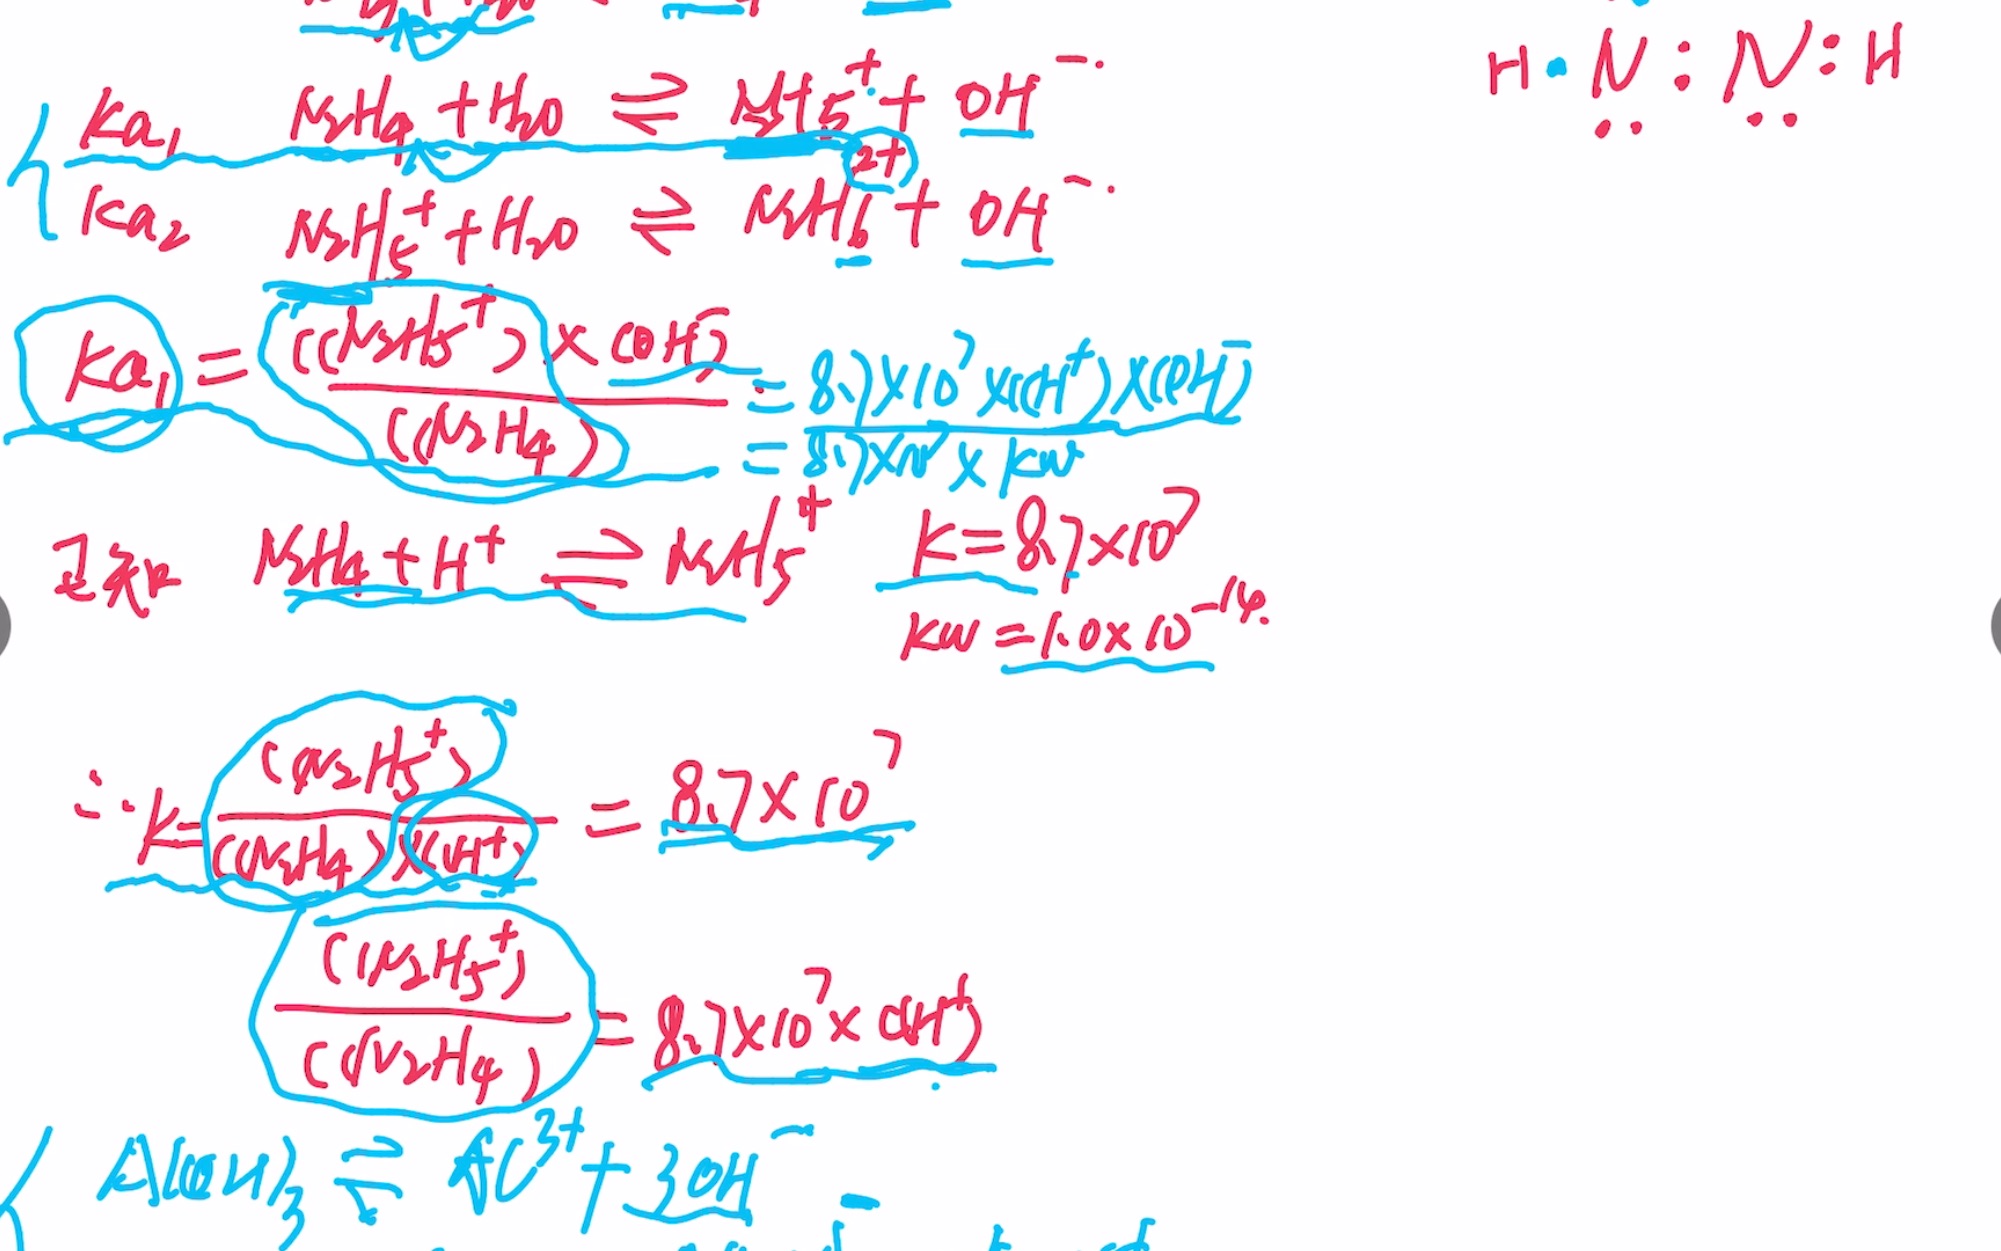 H·N:N:H
Ka₁ N₂H₄ + H₂O ⇌ N₂H₅⁺ + OH⁻.
Ka₂ N₂H₅⁺ + H₂O ⇌ N₂H₆²⁺ + OH⁻.
Ka₁ = c(N₂H₅⁺) × c(OH⁻) / c(N₂H₄) = 8.7×10⁷ × c(H⁺) × c(OH⁻)
= 8.7×10⁷ × Kw
已知 N₂H₄ + H⁺ ⇌ N₂H₅⁺ K = 8.7×10⁷
Kw = 1.0×10⁻¹⁴.
∴ K = c(N₂H₅⁺) / c(N₂H₄) × c(H⁺) = 8.7×10⁷
c(N₂H₅⁺) / c(N₂H₄) = 8.7×10⁷ × c(H⁺)
Al(OH)₃ ⇌ Al³⁺ + 3OH⁻